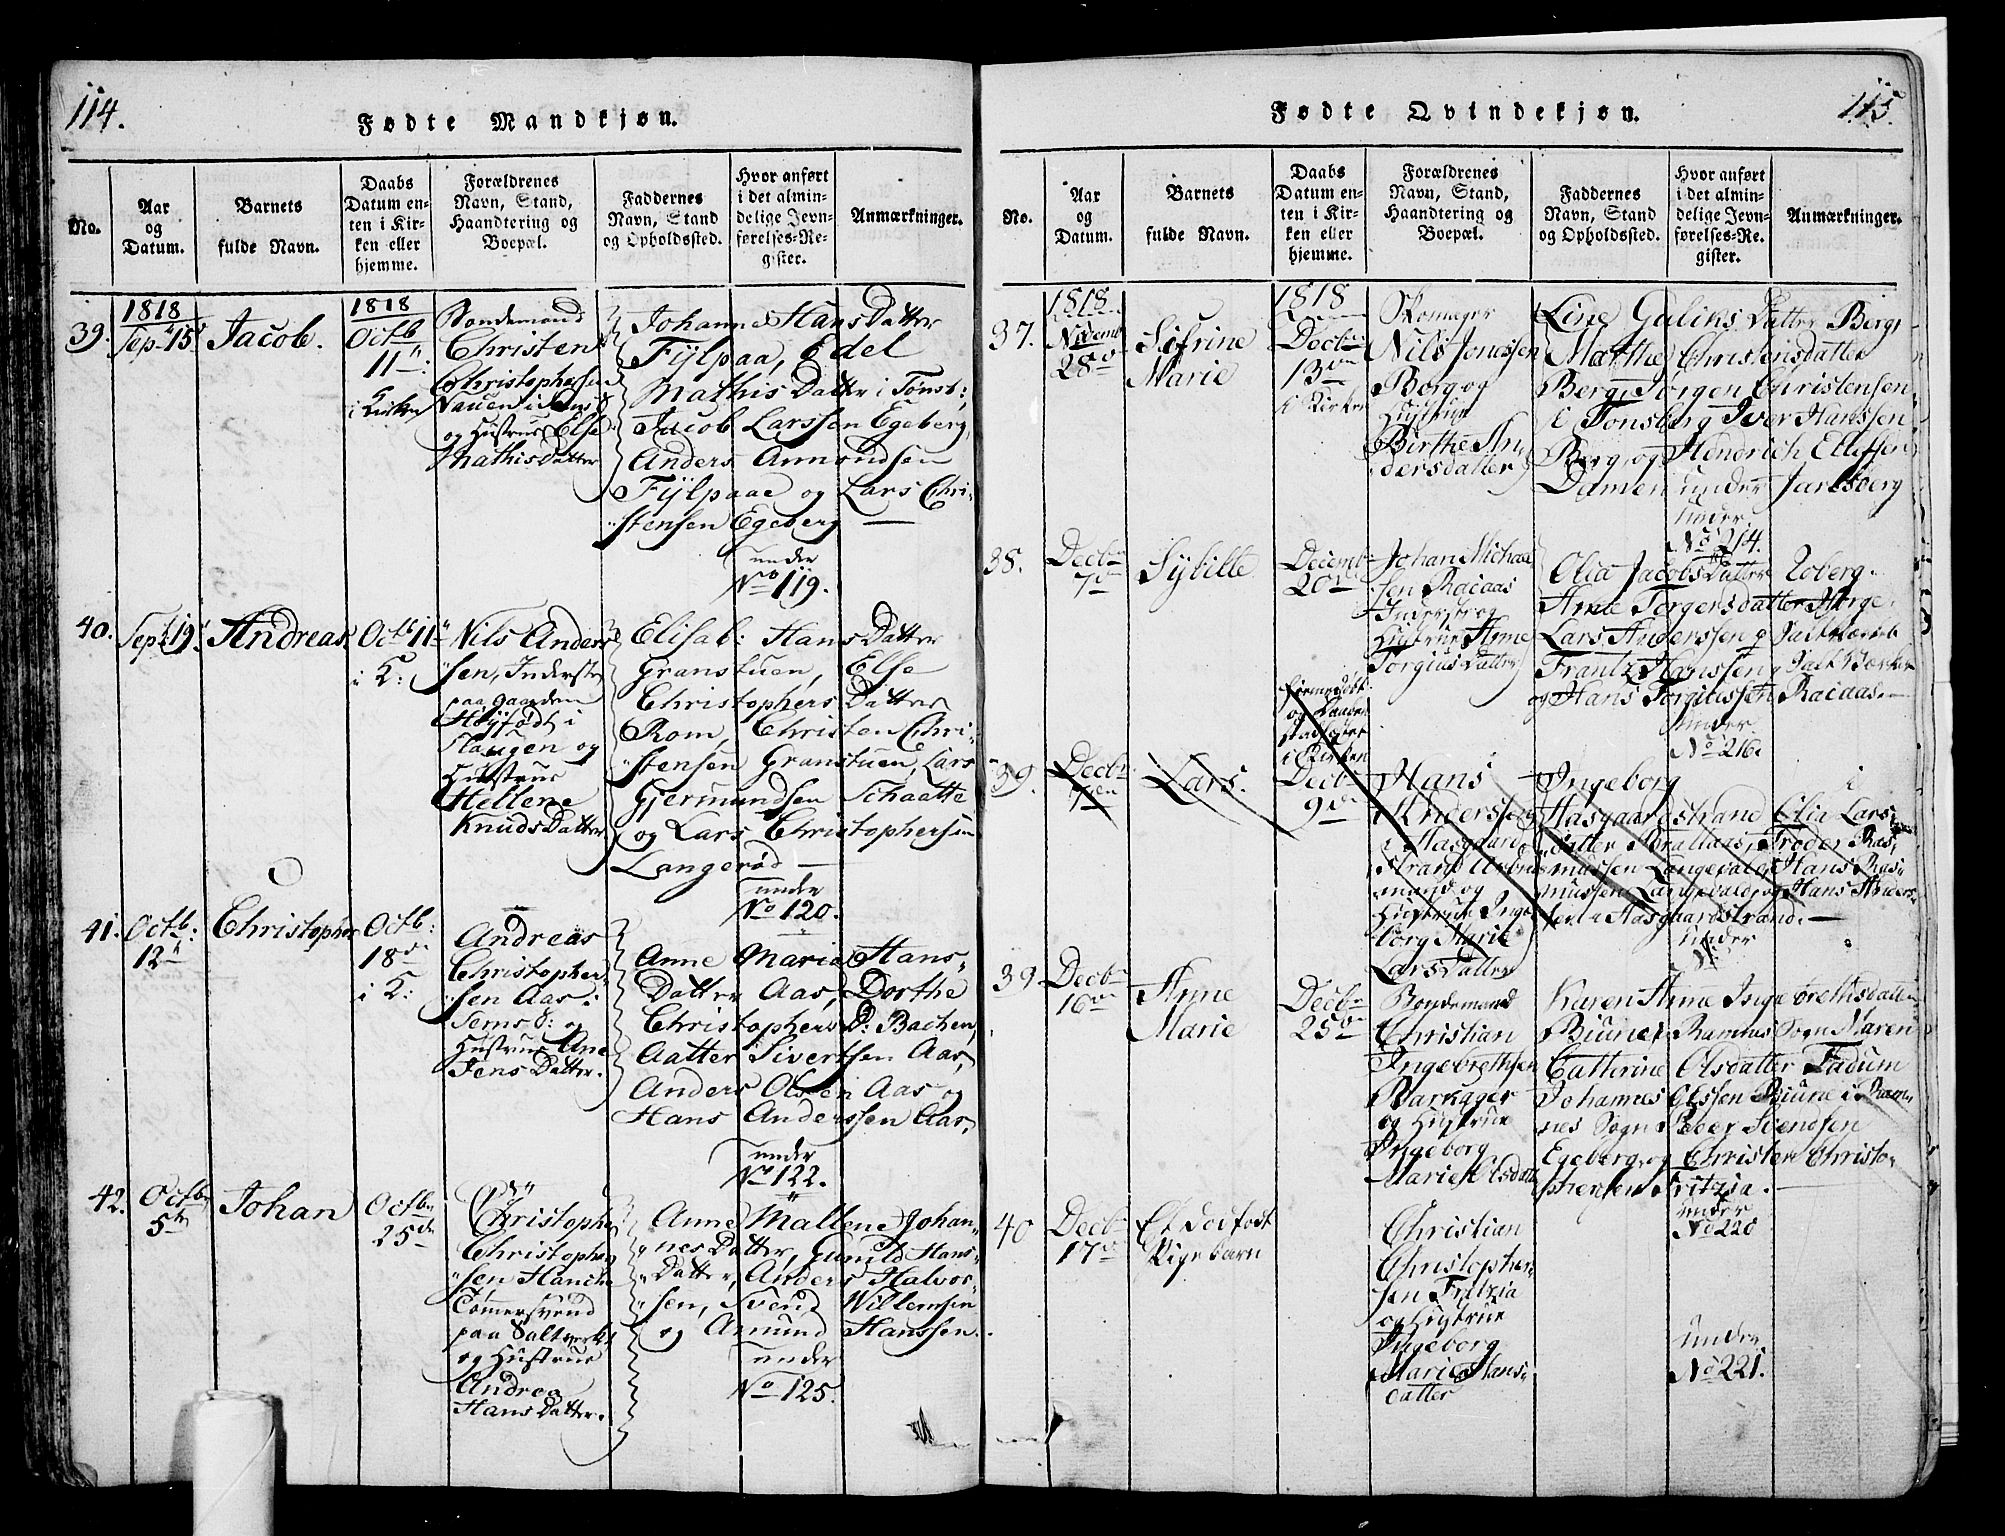 114.
Fødte Mandkjøn.
No.
Aar og Datum.
Barnets fulde Navn.
Daabs Datum enten i Kirken eller hjemme.
Forældrenes Navn, Stand, Haandtering og Boepæl.
Faddernes Navn, Stand og Opholdssted.
Hvor anført i det almindelige Jevnførelses-Register.
Anmærkninger.
39.
1818
Sept 15
Jacob.
1818
Octb
11
i Kirken
Bondemand
Christen
Christophersen
og Hustrue Else
Mathis Datter
Johanne Hans Datter
Fÿlpaa, Edel
Mathis Datter i Tønsb:
Jacob Larssen Egeberg,
Anders Amondsen
Fÿlpaae og Lars Chri-
stensen Egeberg
under
No 119.
40.
Sept 19
Andreas
Octb 11
i K:
Nils Anders
sen, Inderste
paa gaarden
Høÿfødt i
Slaugen og
Hustrue
Hellene
Knuds Datter
Elisab: Hans Datter
Granstuen, Else
Christophers Datter
Rom, Christen Chri-
stensen Granstuen, Lars
Gjermundsen Schaatte
og Lars Christophersen
Langerød
under
No 120.
41.
Octb:
12
Christopher
Octb:
18
i K:
Andreas
Christopher-
sen Aas i
Sems S: og
Hustrue Ane
Jens Datter.
Anne Maria Hans-
Datter Aas, Dorthe
Christophers D: Bachen,
Aatter Sivertsen Aas,
Anders Olsen Aas og
Hans Anderssen Aas,
under
No 122.
42.
Octb
5
Johan
Octbr
25
Christopher
Christopher
sen
Tømersvend
paa Saltverket
og Hustrue
Andrea
Hans Datter.
Anne Mallene Johan-
nes Datter, Gunild Hans-
Datter, Anders Halvor
sen, Svend Willemsen
og Amund Hanssen.
under
No 125.
115.
Fødte Qvindekjøn.
No.
Aar og Datum.
Barnets fulde Navn.
Daabs Datum enten i Kirken eller hjemme.
Forældrenes Navn, Stand, Haandtering og Boepæl.
Faddernes Navn, Stand og Opholdssted.
Hvor anført i det almindelige Jevnførelses-Register.
Anmærkninger.
37.
1818
Novemb
28
Sifrine
Marie
1818
Decbr
13
i Kirken
Skomager
Nils Jonassen
Borg og
Hustrue
Birthe An
dersdatter
Line Guliks Datter Berg,
Marthe Christensdatter
Berg, Jørgen Christensen
i Tønsberg Iver Hanssen
Berg, og Hendrich Ellefsen
Damen under Jarlsberg
under
No 214.
38.
Decbr
7
Sybille
Decemb
20
Johan Michael
sen Raeaas
Inderste og
Hustrue Anne
Torgius Datter
Olia Jacobs Datter
Anne Torgersdatter
Lars Anderssen
Frantz Hanssen
og Hans Torgiussen Raeaas.
under
No 216.
39.
Decbr
7
Lars.
i Kirken
Decbr
9
Hans
Anderssen
i Aasgaard
strand Arbeids
mand og
Hustrue Inge
borg Marie
Lars Datter
Ingeborg i
Aasgaardstrand Eilia Lars
datter
mussen Langevald, Hans Ras
mussen Langevald, og Hans Anders
sen i Aasgaardstrand.
under
39
Decbr
16
Anne
Marie
Decbr
25
Bondemand
Christian
Ingebrethsen
Barkager
og Hustrue
Ingeborg
Marie Olsdatter
Karen Anne Ingebrethsdatter
Biune i Ramnes Sogn Maren
Catterine Olsdatter Fadum
Johannes Olssen Biune i Ram
nes Sogn Peder Svendsen
Egeberg, og Christen Christo-
phersen Fritzia.
under
No 220
40
Decbr
17
Et dødfødt
Pigebarn
Christian
Christopher-
sen Fritzia
og Hustrue
Ingeborg
Marie Hans-
datter
under
No 221.